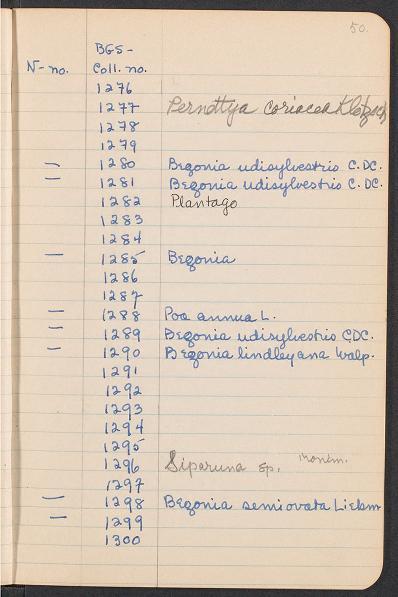 50.
BGS-
N-no. Coll. no.
1276
1277 Pernettya coriacea Klotzsch
1278
1279
— 1280 Begonia udisylvestris C.DC.
— 1281 Begonia udisylvestris C.DC.
1282 Plantago
1283
1284
— 1285 Begonia
1286
1287
— 1288 Poa annua L.
— 1289 Begonia udisylvestris C.DC.
— 1290 Begonia lindleyana Walp.
1291
1292
1293
1294
1295
1296 Siparuna sp.
1297
— 1298 Begonia semiovata Liebm
— 1299
1300